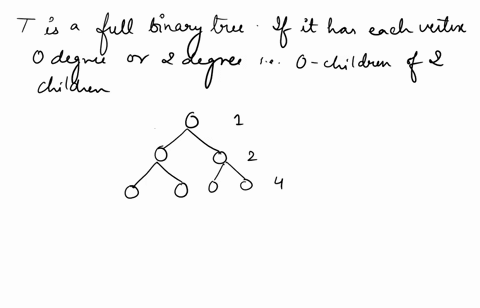 T is a full binary tree. If it has each vertex
0 degree or 2 degree i.e. 0-children of 2
children
1
2
4